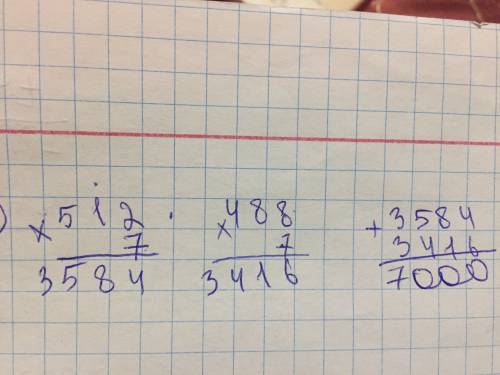 ) × 512 · × 488 + 3584
7 7 3416
3584 3416 7000